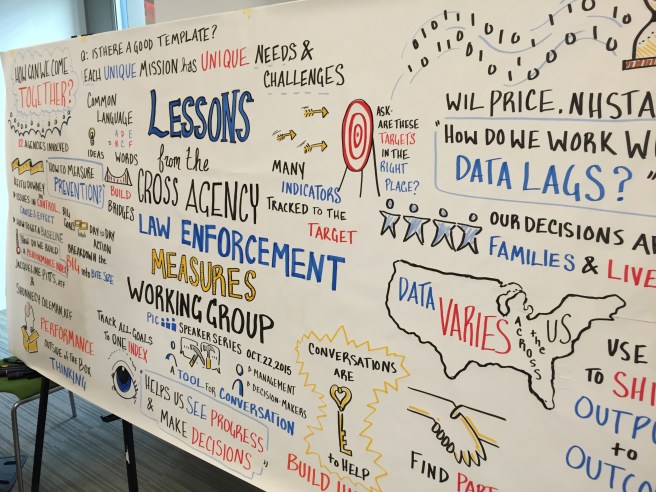 HOW CAN WE COME
TOGETHER?
AGENCIES INVOLVED
Q: IS THERE A GOOD TEMPLATE?
EACH UNIQUE MISSION has UNIQUE NEEDS &
CHALLENGES
COMMON
LANGUAGE
IDEAS
WORDS
BUILD
BRIDGES
HOW TO MEASURE
PREVENTION?
LESSONS
from the
CROSS AGENCY
LAW ENFORCEMENT
MEASURES
WORKING GROUP
PIC SPEAKER SERIES OCT. 22, 2015
MANY
INDICATORS
TRACKED TO THE
TARGET
ASK:
ARE THESE
TARGETS
IN THE
RIGHT
PLACE?
WIL PRICE. NHSTA
"HOW DO WE WORK W
DATA LAGS?"
OUR DECISIONS A
FAMILIES & LIVE
DATA
VARIES
ACROSS
the
US
USE
TO SHI
OUTPU
to
OUTCO
KEITH DOWNEY
ISSUES in CONTROL,
CAUSE & EFFECT
BIG
DAY to DAY
ACTION
BREAKDOWN the
BIG into BITE SIZE
HOW do WE BUILD
a PERFORMANCE INDEX
&
PERFORMANCE
OUTSIDE of the BOX
THINKING
TRACK ALL GOALS
TO ONE INDEX
A TOOL for CONVERSATION
MANAGEMENT
DECISION MAKERS
HELPS US SEE PROGRESS
& MAKE DECISIONS."
CONVERSATIONS
ARE
KEY
to HELP
BUILD
FIND PART